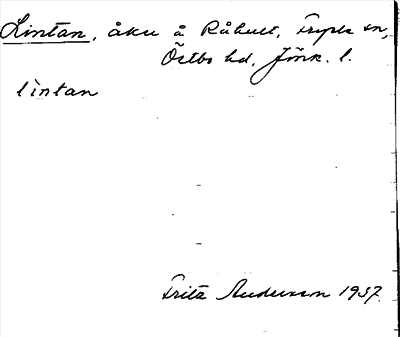 Lintan, åker å Råhult, Fryele sn,
Östbo hd, Jönk. l.
lintan
Fritz Anderson 1937